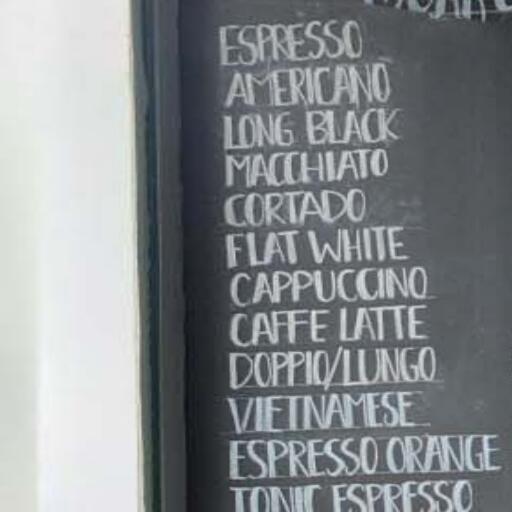 ESPRESSO
AMERICANO
LONG BLACK
MACCHIATO
CORTADO
FLAT WHITE
CAPPUCCINO
CAFFE LATTE
DOPPIO/LUNGO
VIETNAMESE
ESPRESSO ORANGE
TONIC ESPRESSO